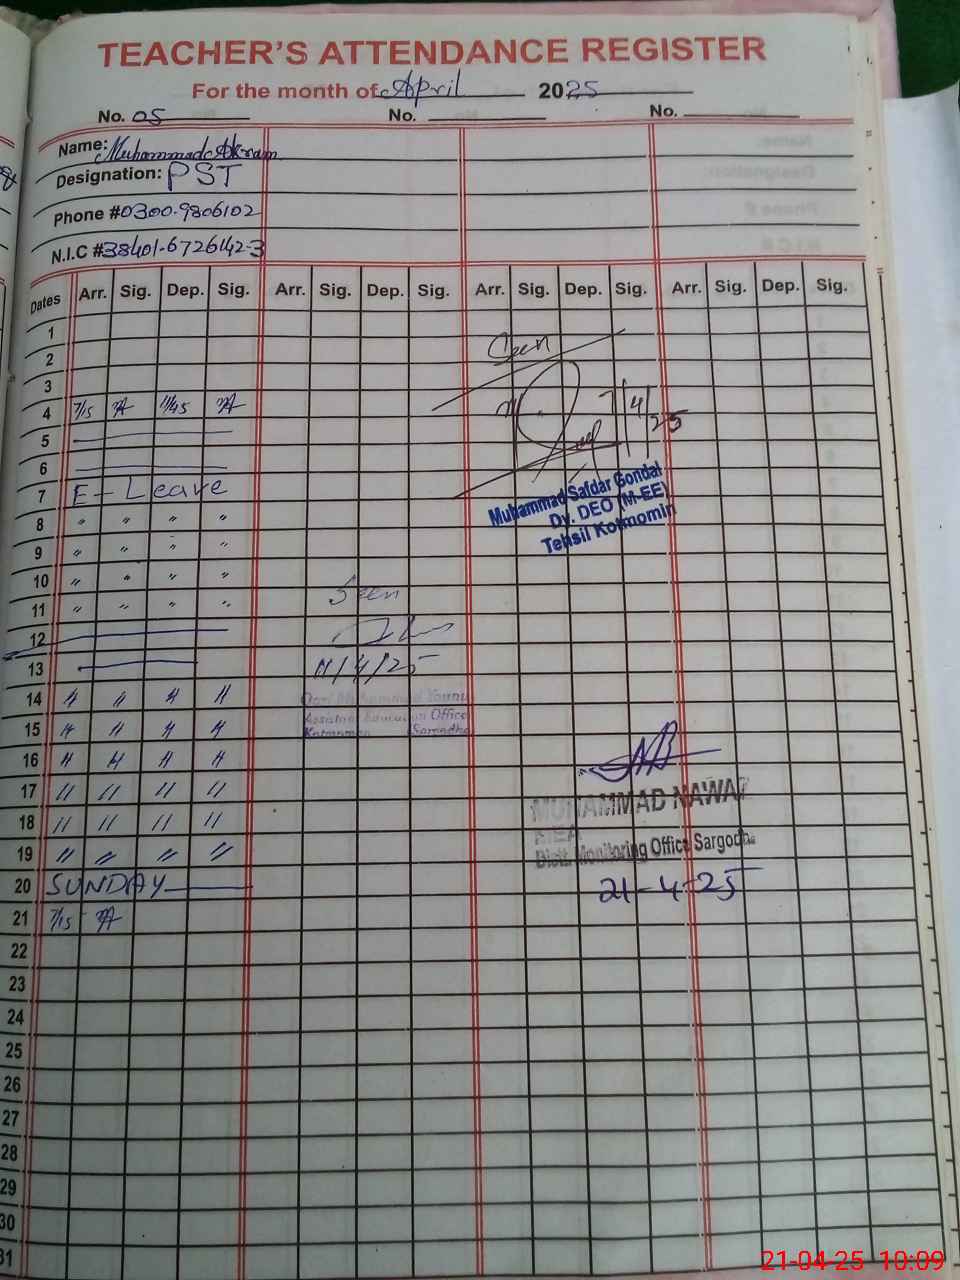 TEACHER'S ATTENDANCE REGISTER
For the month of April 2025
No. 05 No. No.
Name: Muhammad Akram
Designation: PST
Phone #0300-9806102
N.I.C #38401-6726142-3
Dates Arr. Sig. Dep. Sig. Arr. Sig. Dep. Sig. Arr. Sig. Dep. Sig. Arr. Sig. Dep. Sig.
1
2 Seen
3
4 7/15 11/45 7/4/25
5
6
7 E-Leave
Muhammad Safdar Gondal
Dy. DEO (M-EE)
Tehsil Kotmomin
8 " " " "
9 " " " "
10 " " " "
11 " " " " Seen
12
13 11/4/25
14 " " " "
Qari Muhammad Younus
15 " " " "
Assistant Education Office
Kotmomin Sargodha
16 " " " "
17 " " " "
MUHAMMAD NAWAZ
18 " " " "
MEA
19 " " " "
Distt. Monitoring Office Sargodha
20 SUNDAY 21-4-25
21 7/15
22
23
24
25
26
27
28
29
30
31
21-04-25 10:09